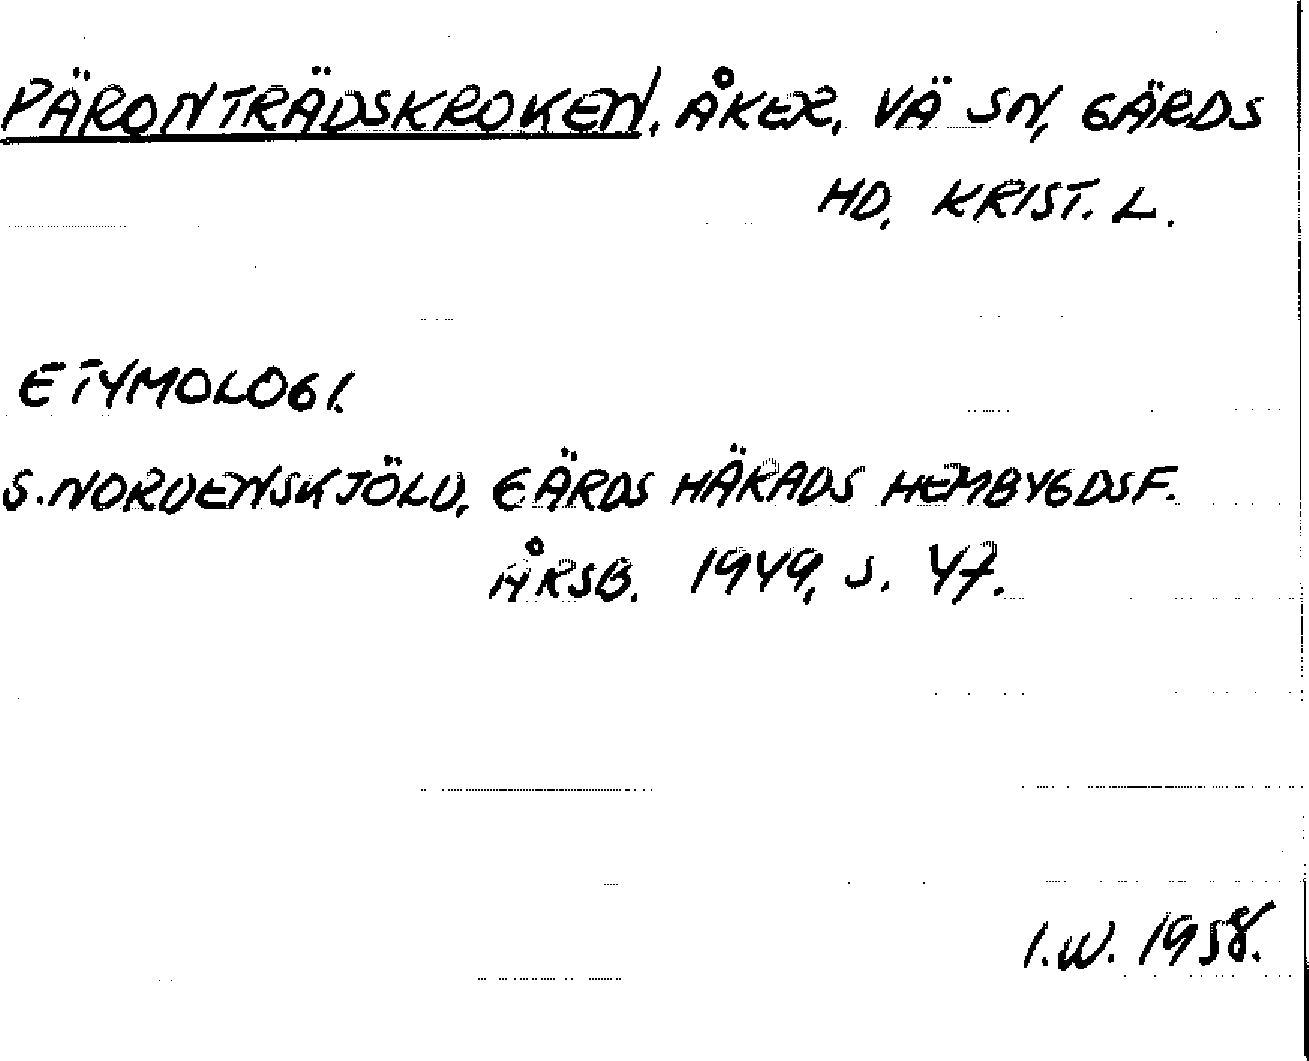 PÄRONTRÄDSKROKEN, ÅKER, VÄ SN, GÄRDS
HD, KRIST. L.
ETYMOLOGI.
S. NORDENSKJÖLD, GÄRDS HÄRADS HEMBYGDSF.
ÅRSB. 1949, S. 47.
I.W. 1958.